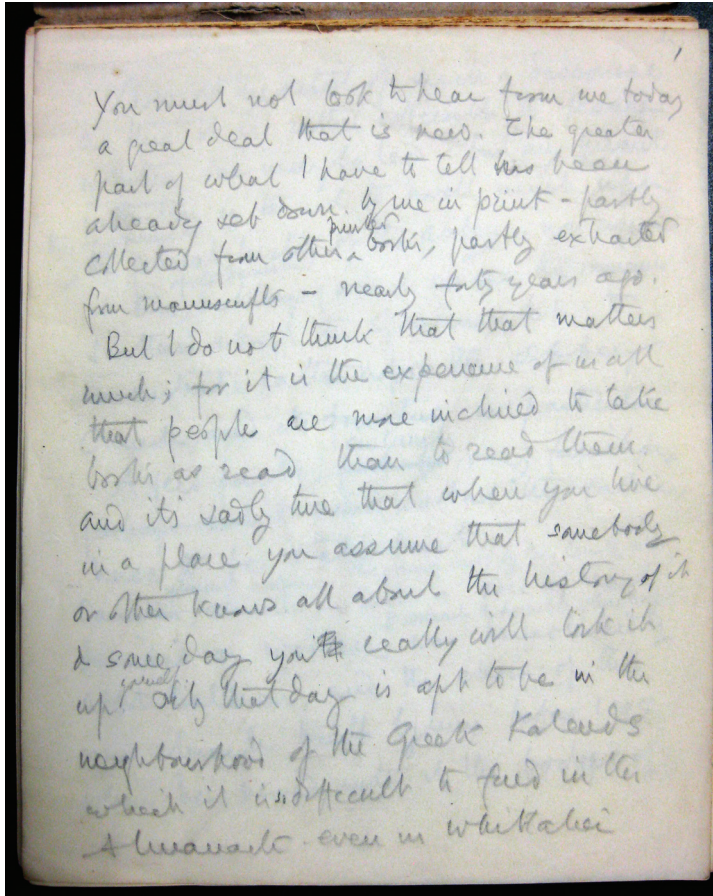 1
You must not look to hear from me today
a great deal that is new. The greater
part of what I have to tell has been
already set down by me in print - partly
collected from other printed books, partly extracted
from manuscripts - nearly forty years ago.
But I do not think that that matters
much; for it is the experience of us all
that people are more inclined to take
books as read than to read them.
and it's sadly true that when you live
in a place you assume that somebody
or other knows all about the history of it
& some day you really will look it
up yourself. Only that day is apt to be in the
neighbourhood of the Greek Kalends
which it is difficult to find in the
Almanack even in Whitaker